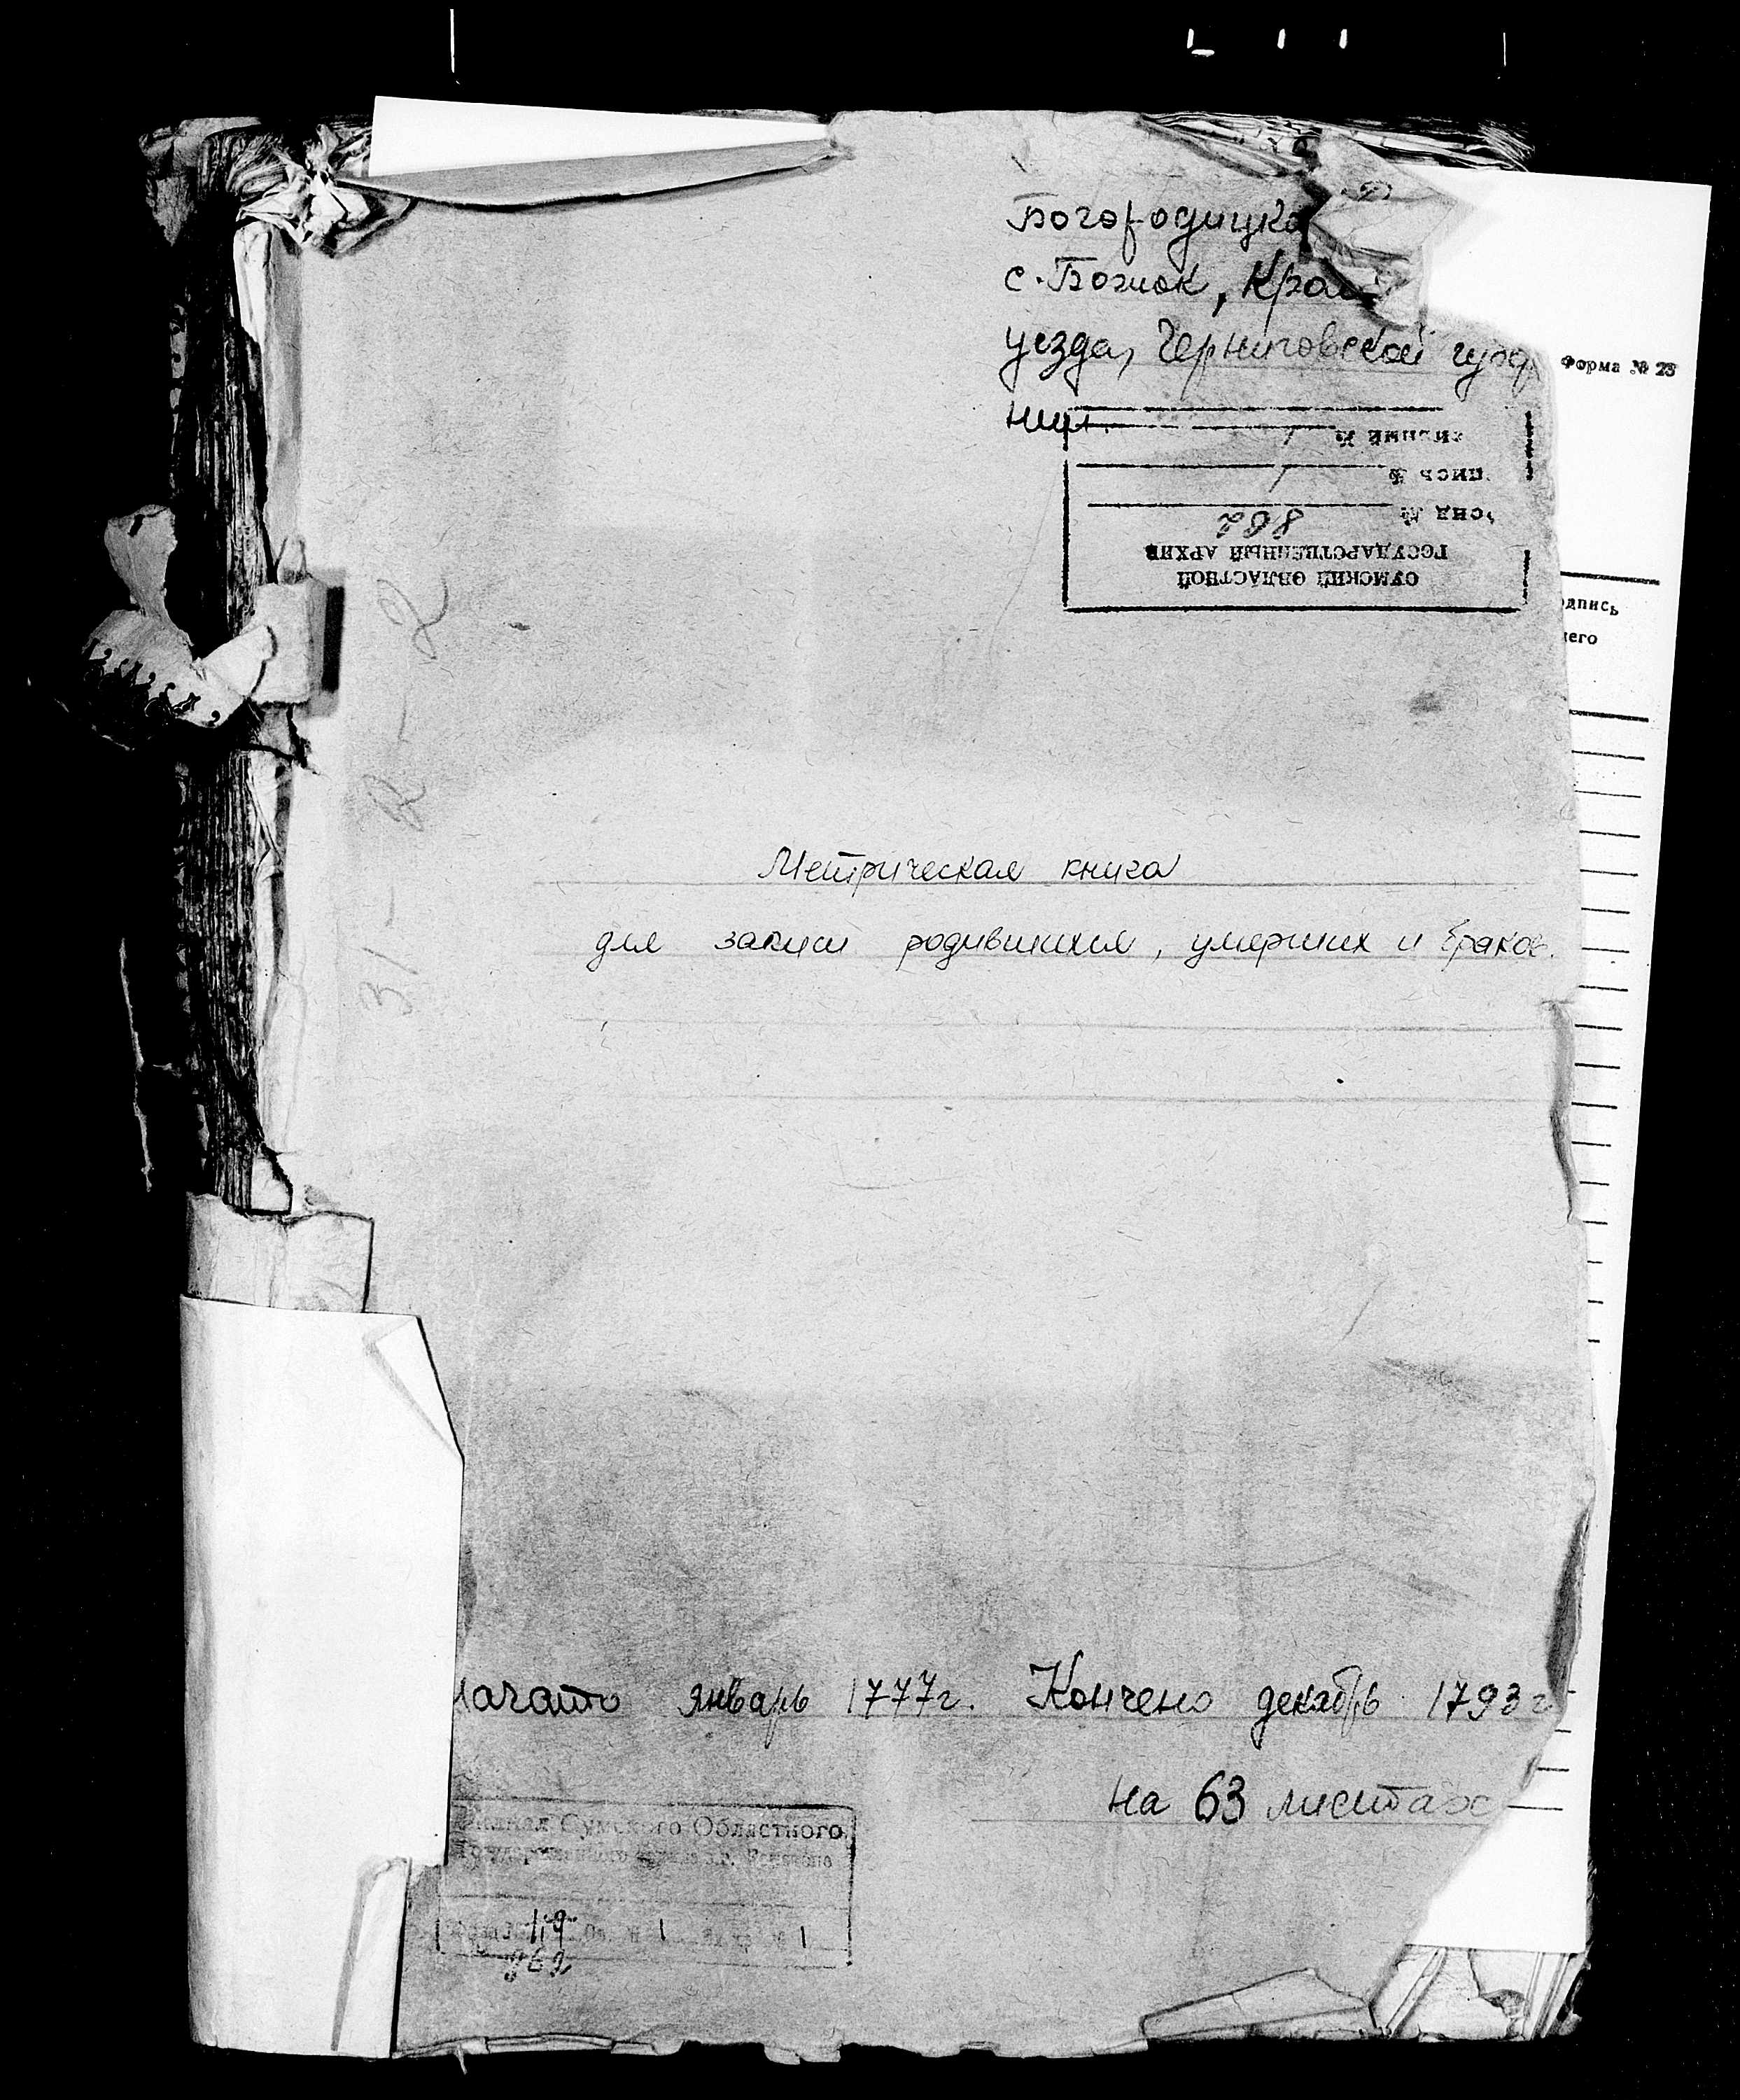 Богородицка
с. Божок, Крол
уезда, Черниговской губер
нии.
Форма № 23
СУМСКИЙ ОБЛАСТНОЙ
ГОСУДАРСТВЕННЫЙ АРХИВ
онд № 862
пись № 1
ивный № 1
одпись
чего
31-R-2
Метрическая книга
для записи родившихся, умерших и браков.
Начато январь 1777г. Кончено декабрь 1793г
на 63 листах
Филиал Сумского Областного
Государственного архива в г.
119 1 1
862